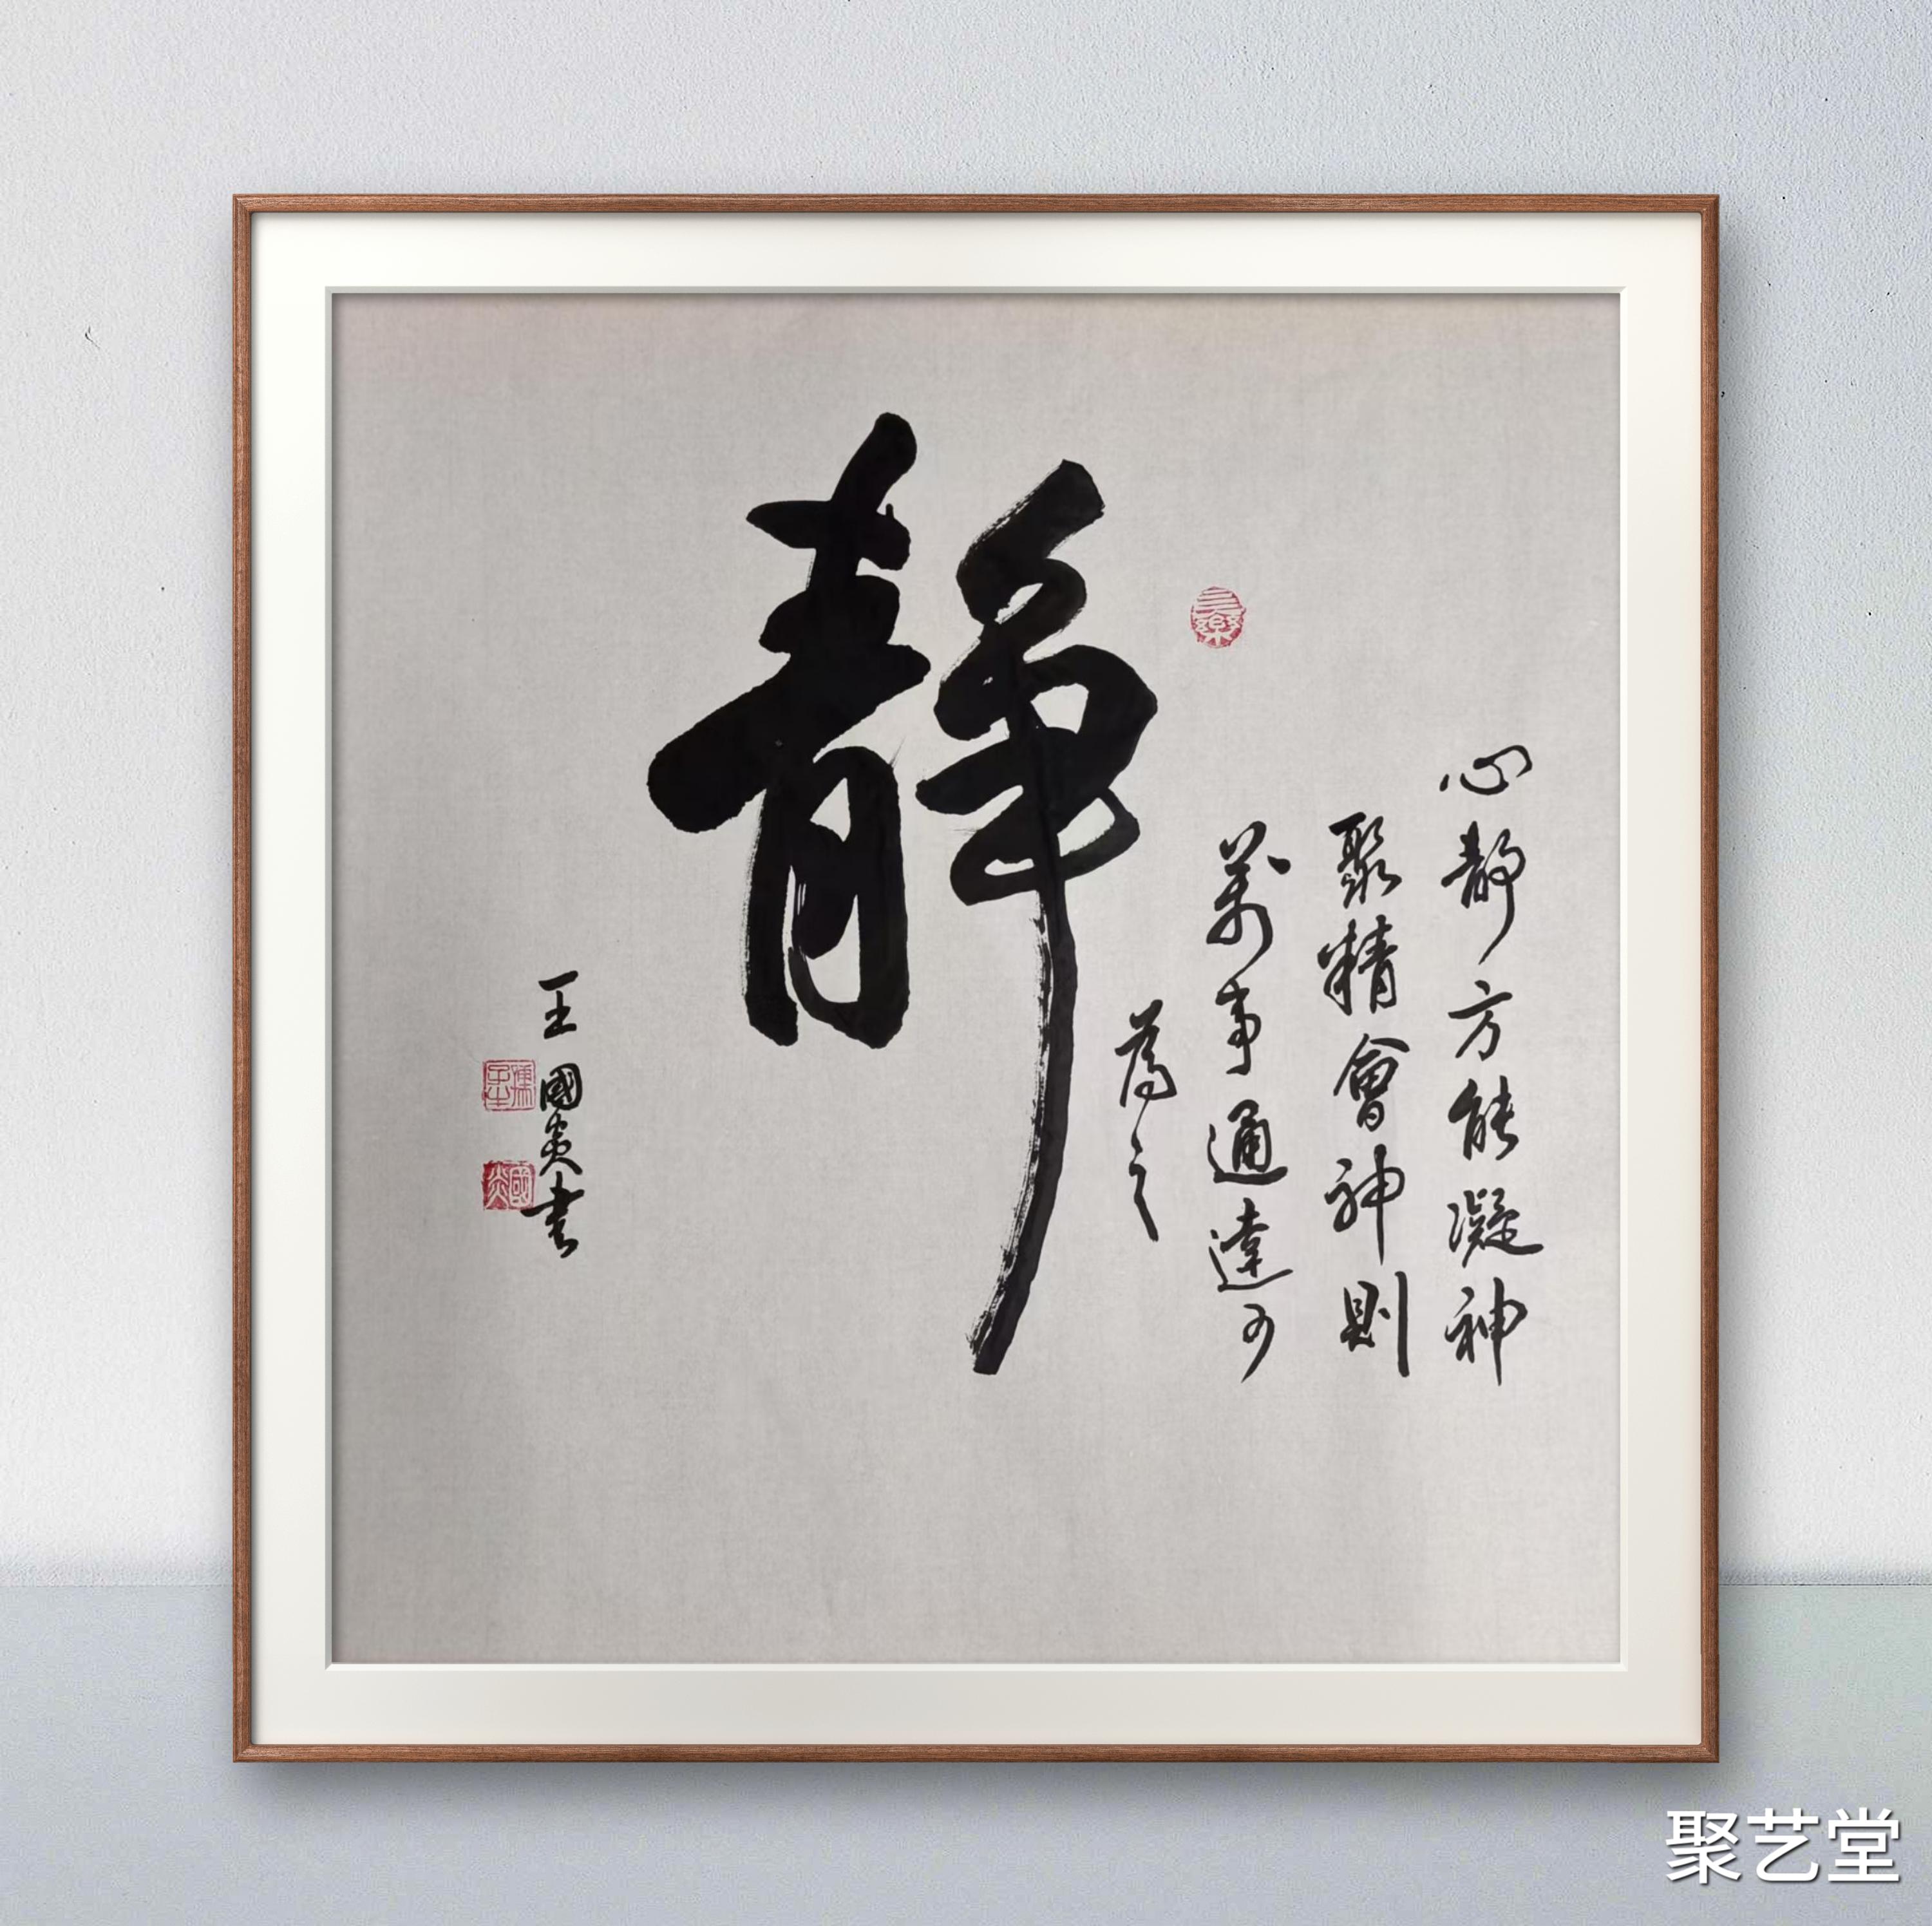 心靜方能凝神
聚精會神則
萬事通達可
為之
三樂
靜
王國炎書
國炎
聚艺堂